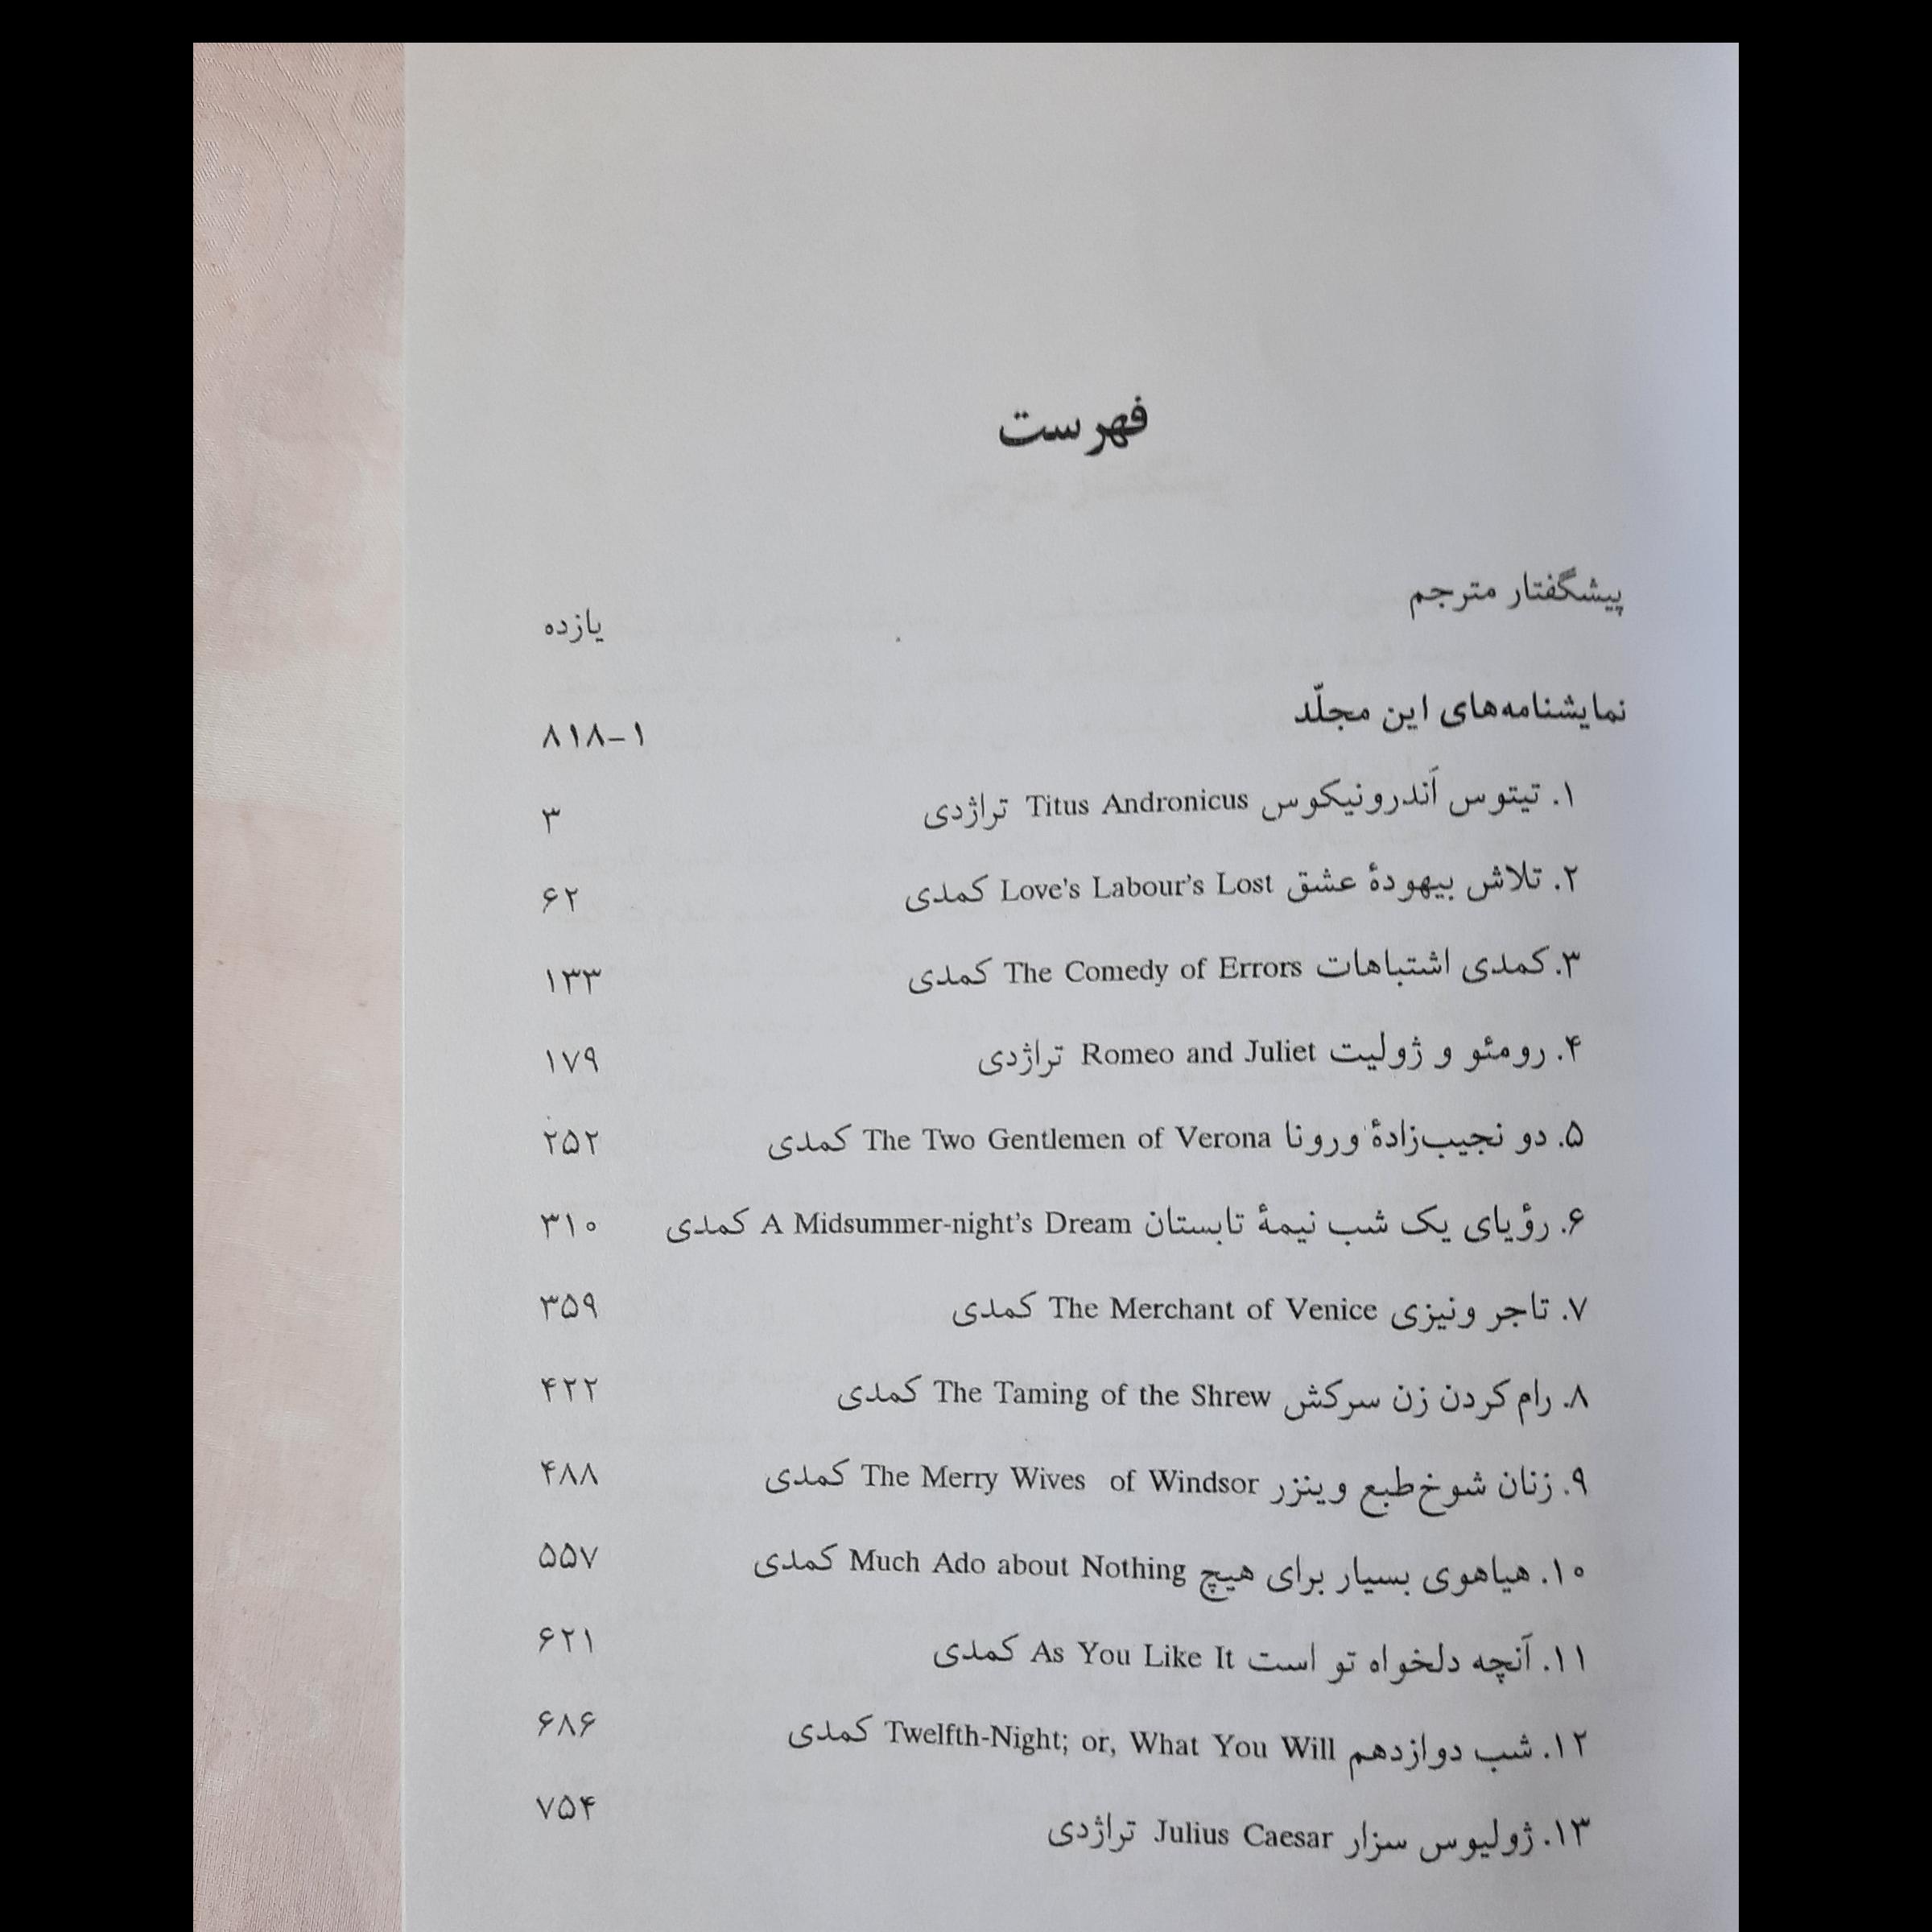 فهرست
پیشگفتار مترجم یازده
نمایشنامه‌های این مجلّد ۱–۸۱۸
۱. تیتوس آندرونیکوس Titus Andronicus تراژدی ۳
۲. تلاش بیهودهٔ عشق Love's Labour's Lost کمدی ۶۲
۳. کمدی اشتباهات The Comedy of Errors کمدی ۱۳۳
۴. رومئو و ژولیت Romeo and Juliet تراژدی ۱۷۹
۵. دو نجیب‌زادهٔ ورونا The Two Gentlemen of Verona کمدی ۲۵۲
۶. رؤیای یک شب نیمهٔ تابستان A Midsummer-night's Dream کمدی ۳۱۰
۷. تاجر ونیزی The Merchant of Venice کمدی ۳۵۹
۸. رام کردن زن سرکش The Taming of the Shrew کمدی ۴۲۲
۹. زنان شوخ‌طبع وینزر The Merry Wives of Windsor کمدی ۴۸۸
۱۰. هیاهوی بسیار برای هیچ Much Ado about Nothing کمدی ۵۵۷
۱۱. آنچه دلخواه تو است As You Like It کمدی ۶۲۱
۱۲. شب دوازدهم Twelfth-Night; or, What You Will کمدی ۶۸۶
۱۳. ژولیوس سزار Julius Caesar تراژدی ۷۵۴